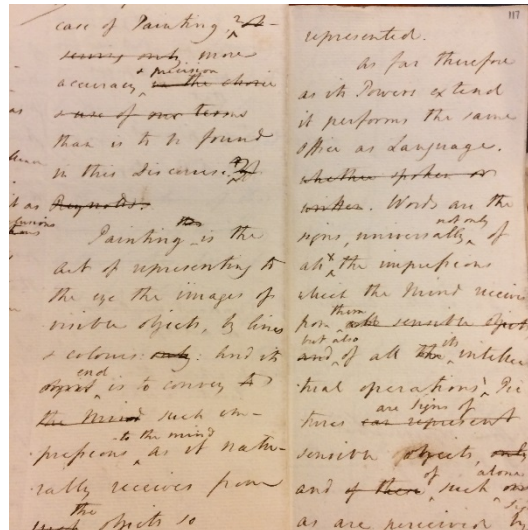 case of Painting,
seems only more
accuracy & precision in the choice
& use of our terms
than is to be found
in this Discourse.
Reynolds.
Painting is the
art of representing to
the eye the images of
visible objects, by lines
& colours only: And its
object end is to convey to
the Mind such im-
pressions to the mind as it natu-
rally receives from
such the objects so
117
represented.
As far therefore
as its Powers extend
it performs the same
Office as Language.
whether spoken or
written. Words are the
signs, universally, not only of
all the impressions
which the Mind receives
from them all sensible objects
but also
and of all the its intellec
tual operations. Pic
tures are signs of can represent
sensible objects, only
and of these of such alone
as are perceived by